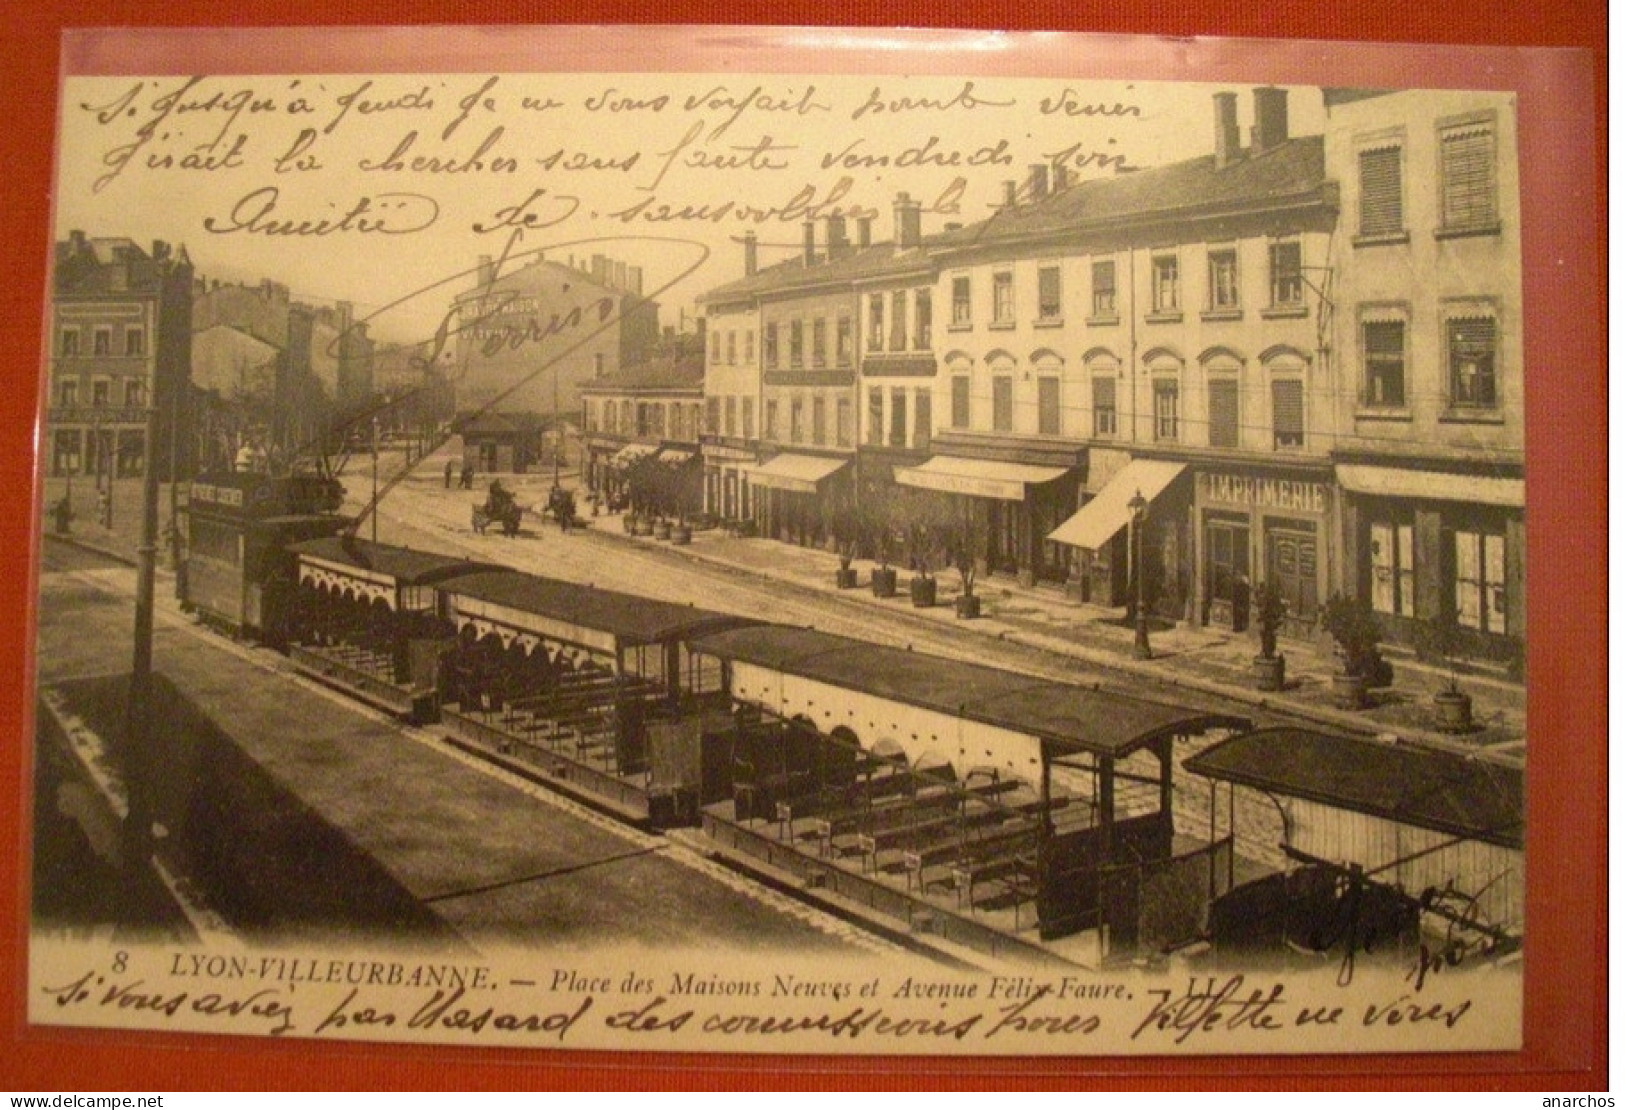 Si Jusqu'à Jeudi Je ne vous voyait point venir
J'irait la chercher sans faute vendredi soir
Amitié de
Perrin
IMPRIMERIE
8 LYON-VILLEURBANNE. — Place des Maisons Neuves et Avenue Félix-Faure. — LL
Si vous aviez par Hasard des commissions pour Villette ne vous
anarchos
delcampe.net